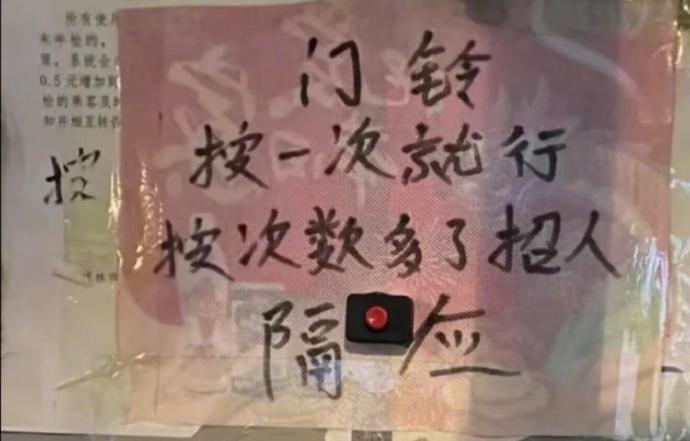 所有使用
未年检的,
0.5元增加到
检的乘客及时
知并相互转告
按
门铃
按一次就行
按次数多了招人
隔应